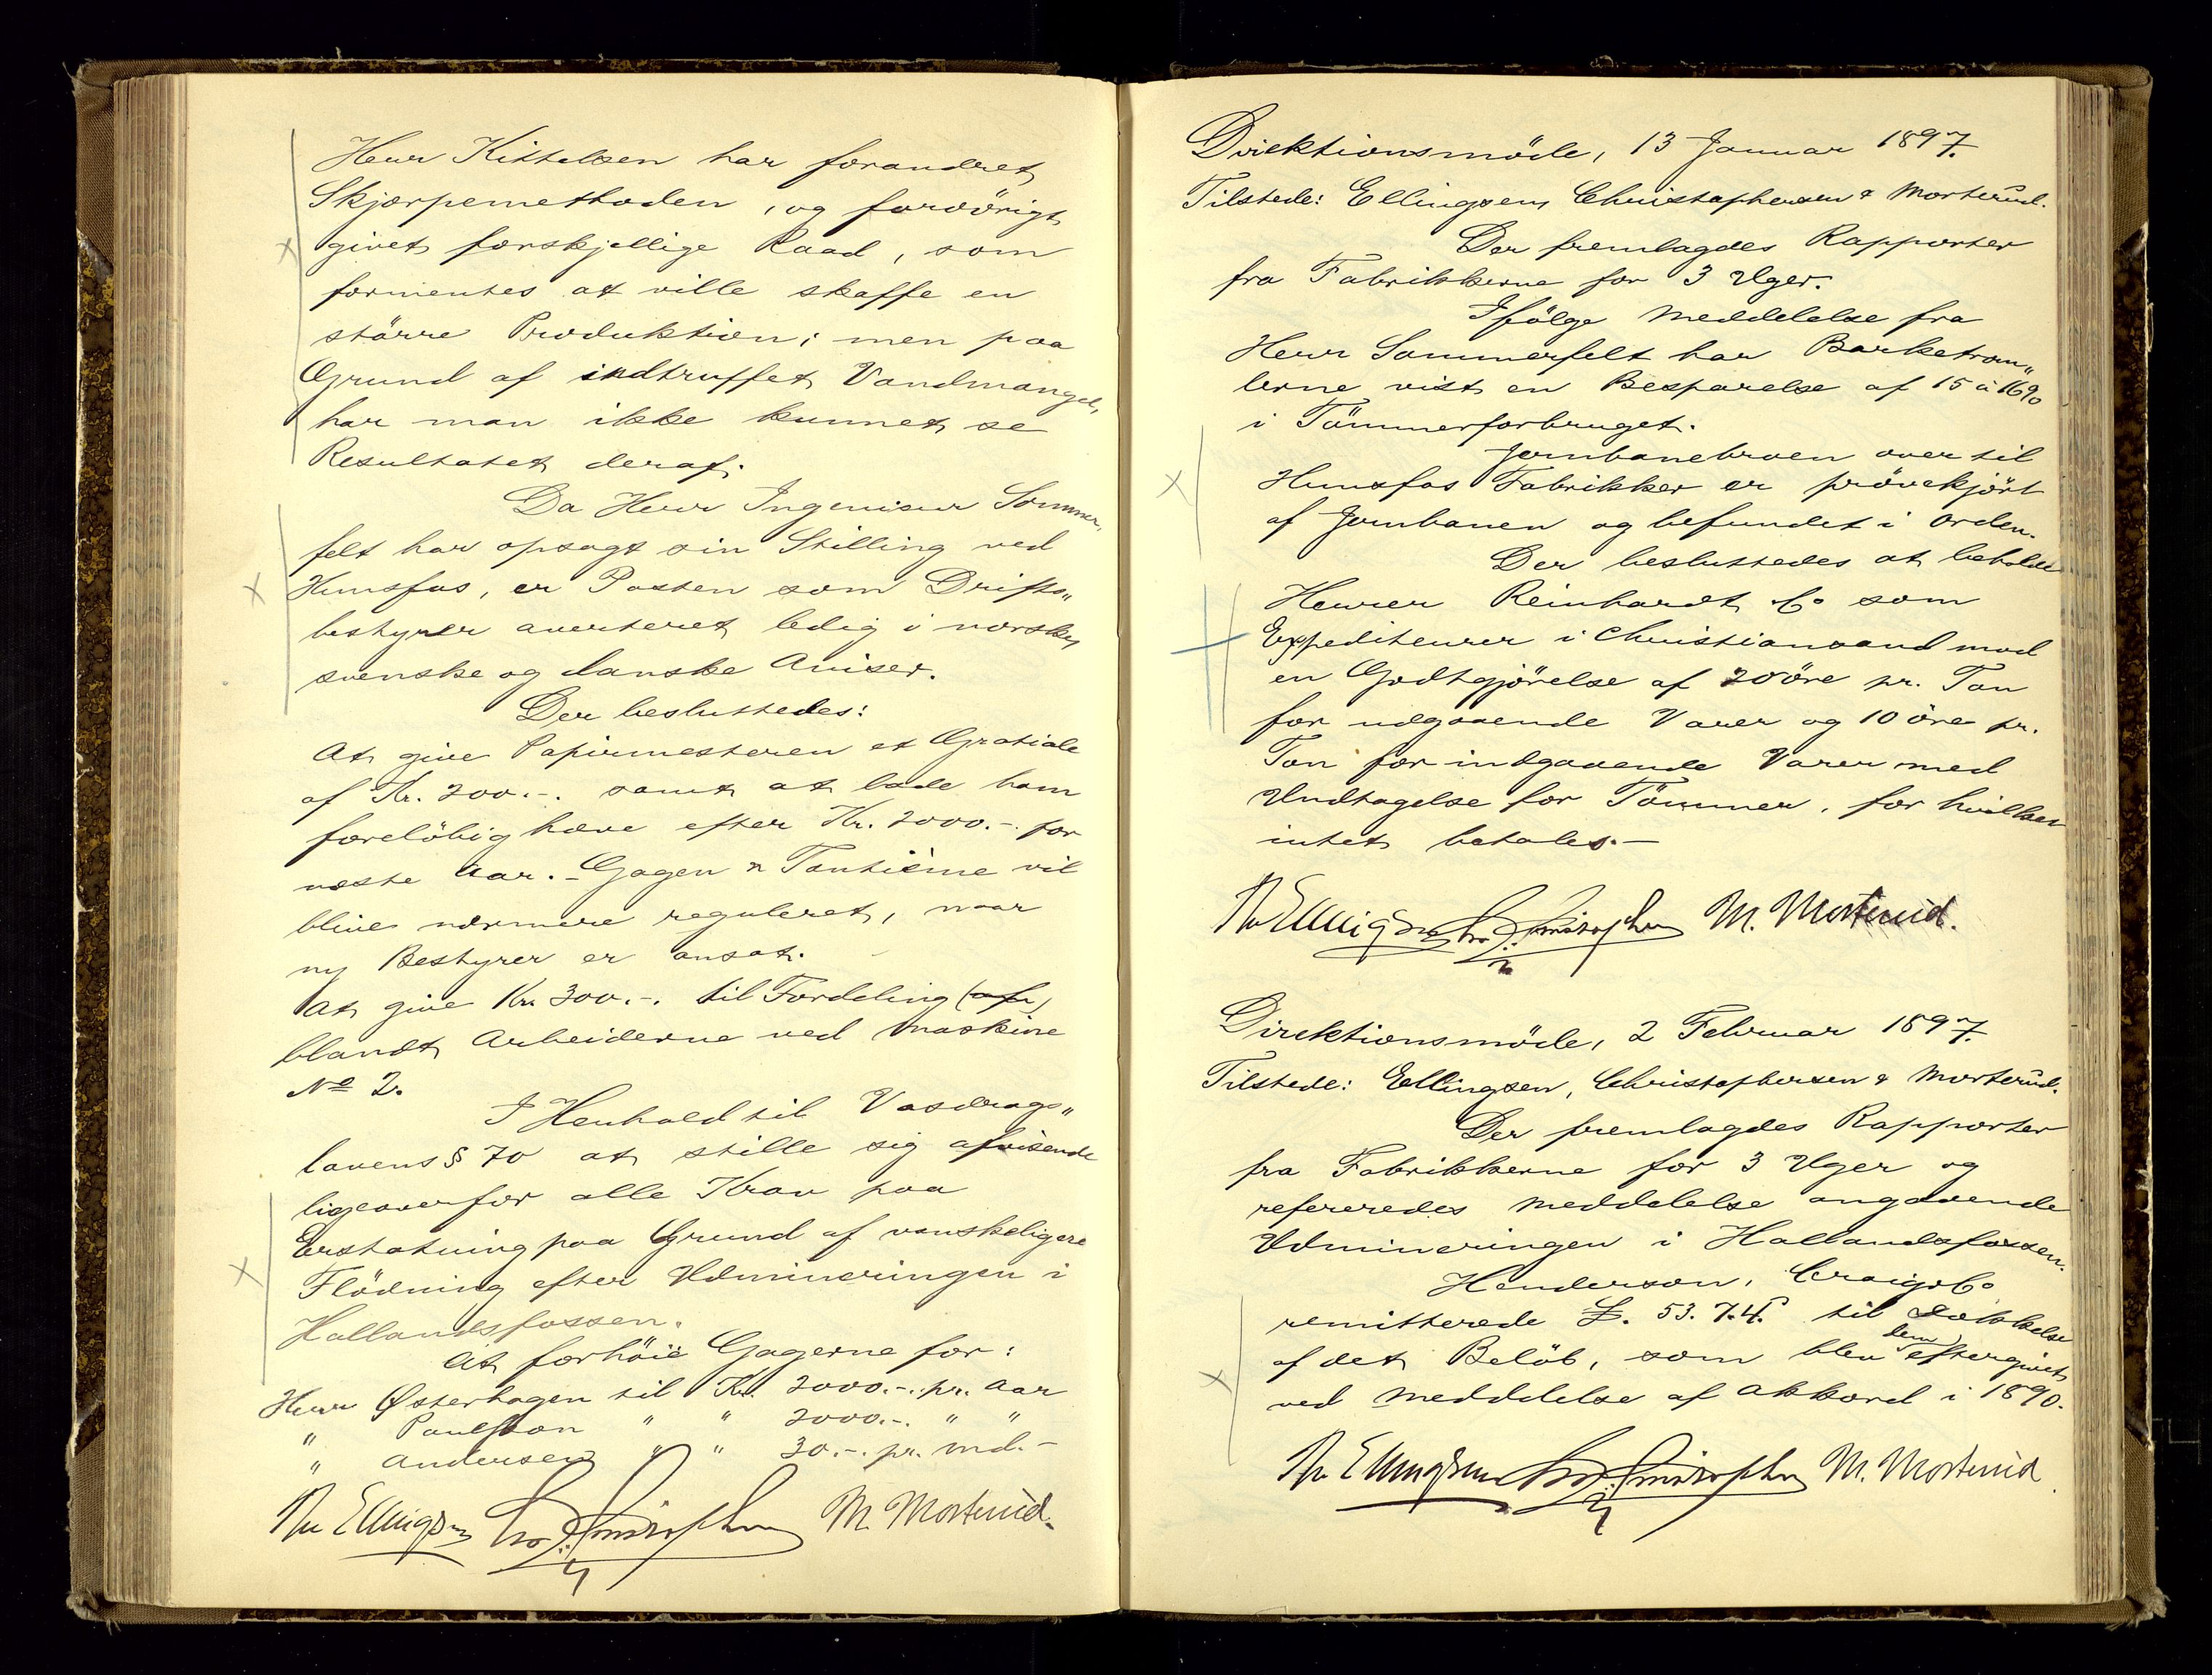 Herr Kittelsen har forandret
Skjærpemethoden, og forövrigt
givet forskjellige Raad, som
formentes at ville skaffe en
större Produktion; men paa
Grund af indtruffet Vandmangel,
har man ikke kunnet se
Resultatet deraf.
Da Herr Ingeniør Sommer„
felt har opsagt sin Stilling ved
Hunsfos, er Posten som Drifts„
bestyrer averteret ledig i norske,
svenske og danske Aviser.
Der besluttedes:
At give Papirmesteren et Gratiale
af Kr. 200.-. samt at lade ham
foreløbig hæve efter Kr. 2000.-. for
næste Aar.- Gagen & Tantième vil
blive nærmere reguleret, naar
ny Bestyrer er ansat.
At give Kr. 300.-. til Fordeling (af)
blandt Arbeiderne ved Maskine
No 2.
I Henhold til Vasdrags„
lovens § 70 at stille sig afvisende
ligeoverfor alle Krav paa
Erstatning paa Grund af vanskeligere
Flödning efter Udmineringen i
Hallandsfossen.
At forhöie Gagerne for:
Herr Østerhagen til Kr. 2000.-. pr. Aar
„ Paulsson „ „ 2000.-. „ „
„ Andersen „ „ 30.-. pr. Md.-
Ellingsen Christophersen M. Mosterud.
Direktionsmöde, 13 Januar 1897.
Tilstede: Ellingsen, Christophersen & Mosterud.
Der fremlagdes Rapporter
fra Fabrikkerne for 3 Uger.
Ifölge Meddelelse fra
Herr Sommerfelt har Barketrom„
lerne vist en Besparelse af 15 à 16%
i Tömmerforbruget.
Jernbanebroen over til
Hunsfos Fabrikker er prövekjört
af Jernbanen og befundet i Orden.
Der besluttedes at beholde
Herrer Reinhardt & Co som
Expediteurer i Christiansand mod
en Godtgjörelse af 20 öre pr. Ton
for udgaaende Varer og 10 öre pr.
Ton for indgaaende Varer med
Undtagelse for Tömmer, for hvilket
intet betales.-
Ellingsen Christophersen M. Mosterud.
Direktionsmöde, 2 Februar 1897.
Tilstede: Ellingsen, Christophersen & Mosterud.
Der fremlagdes Rapporter
fra Fabrikkerne for 3 Uger og
refereredes Meddelelse angaaende
Udmineringen i Hallandsfossen.
Henderson, Craig & Co
remitterede £. 53. 7. 4. til Dækkelse
af det Belöb, som blev dem eftergivet
ved Meddelelse af Akkord i 1890.
Ellingsen Christophersen M. Mosterud